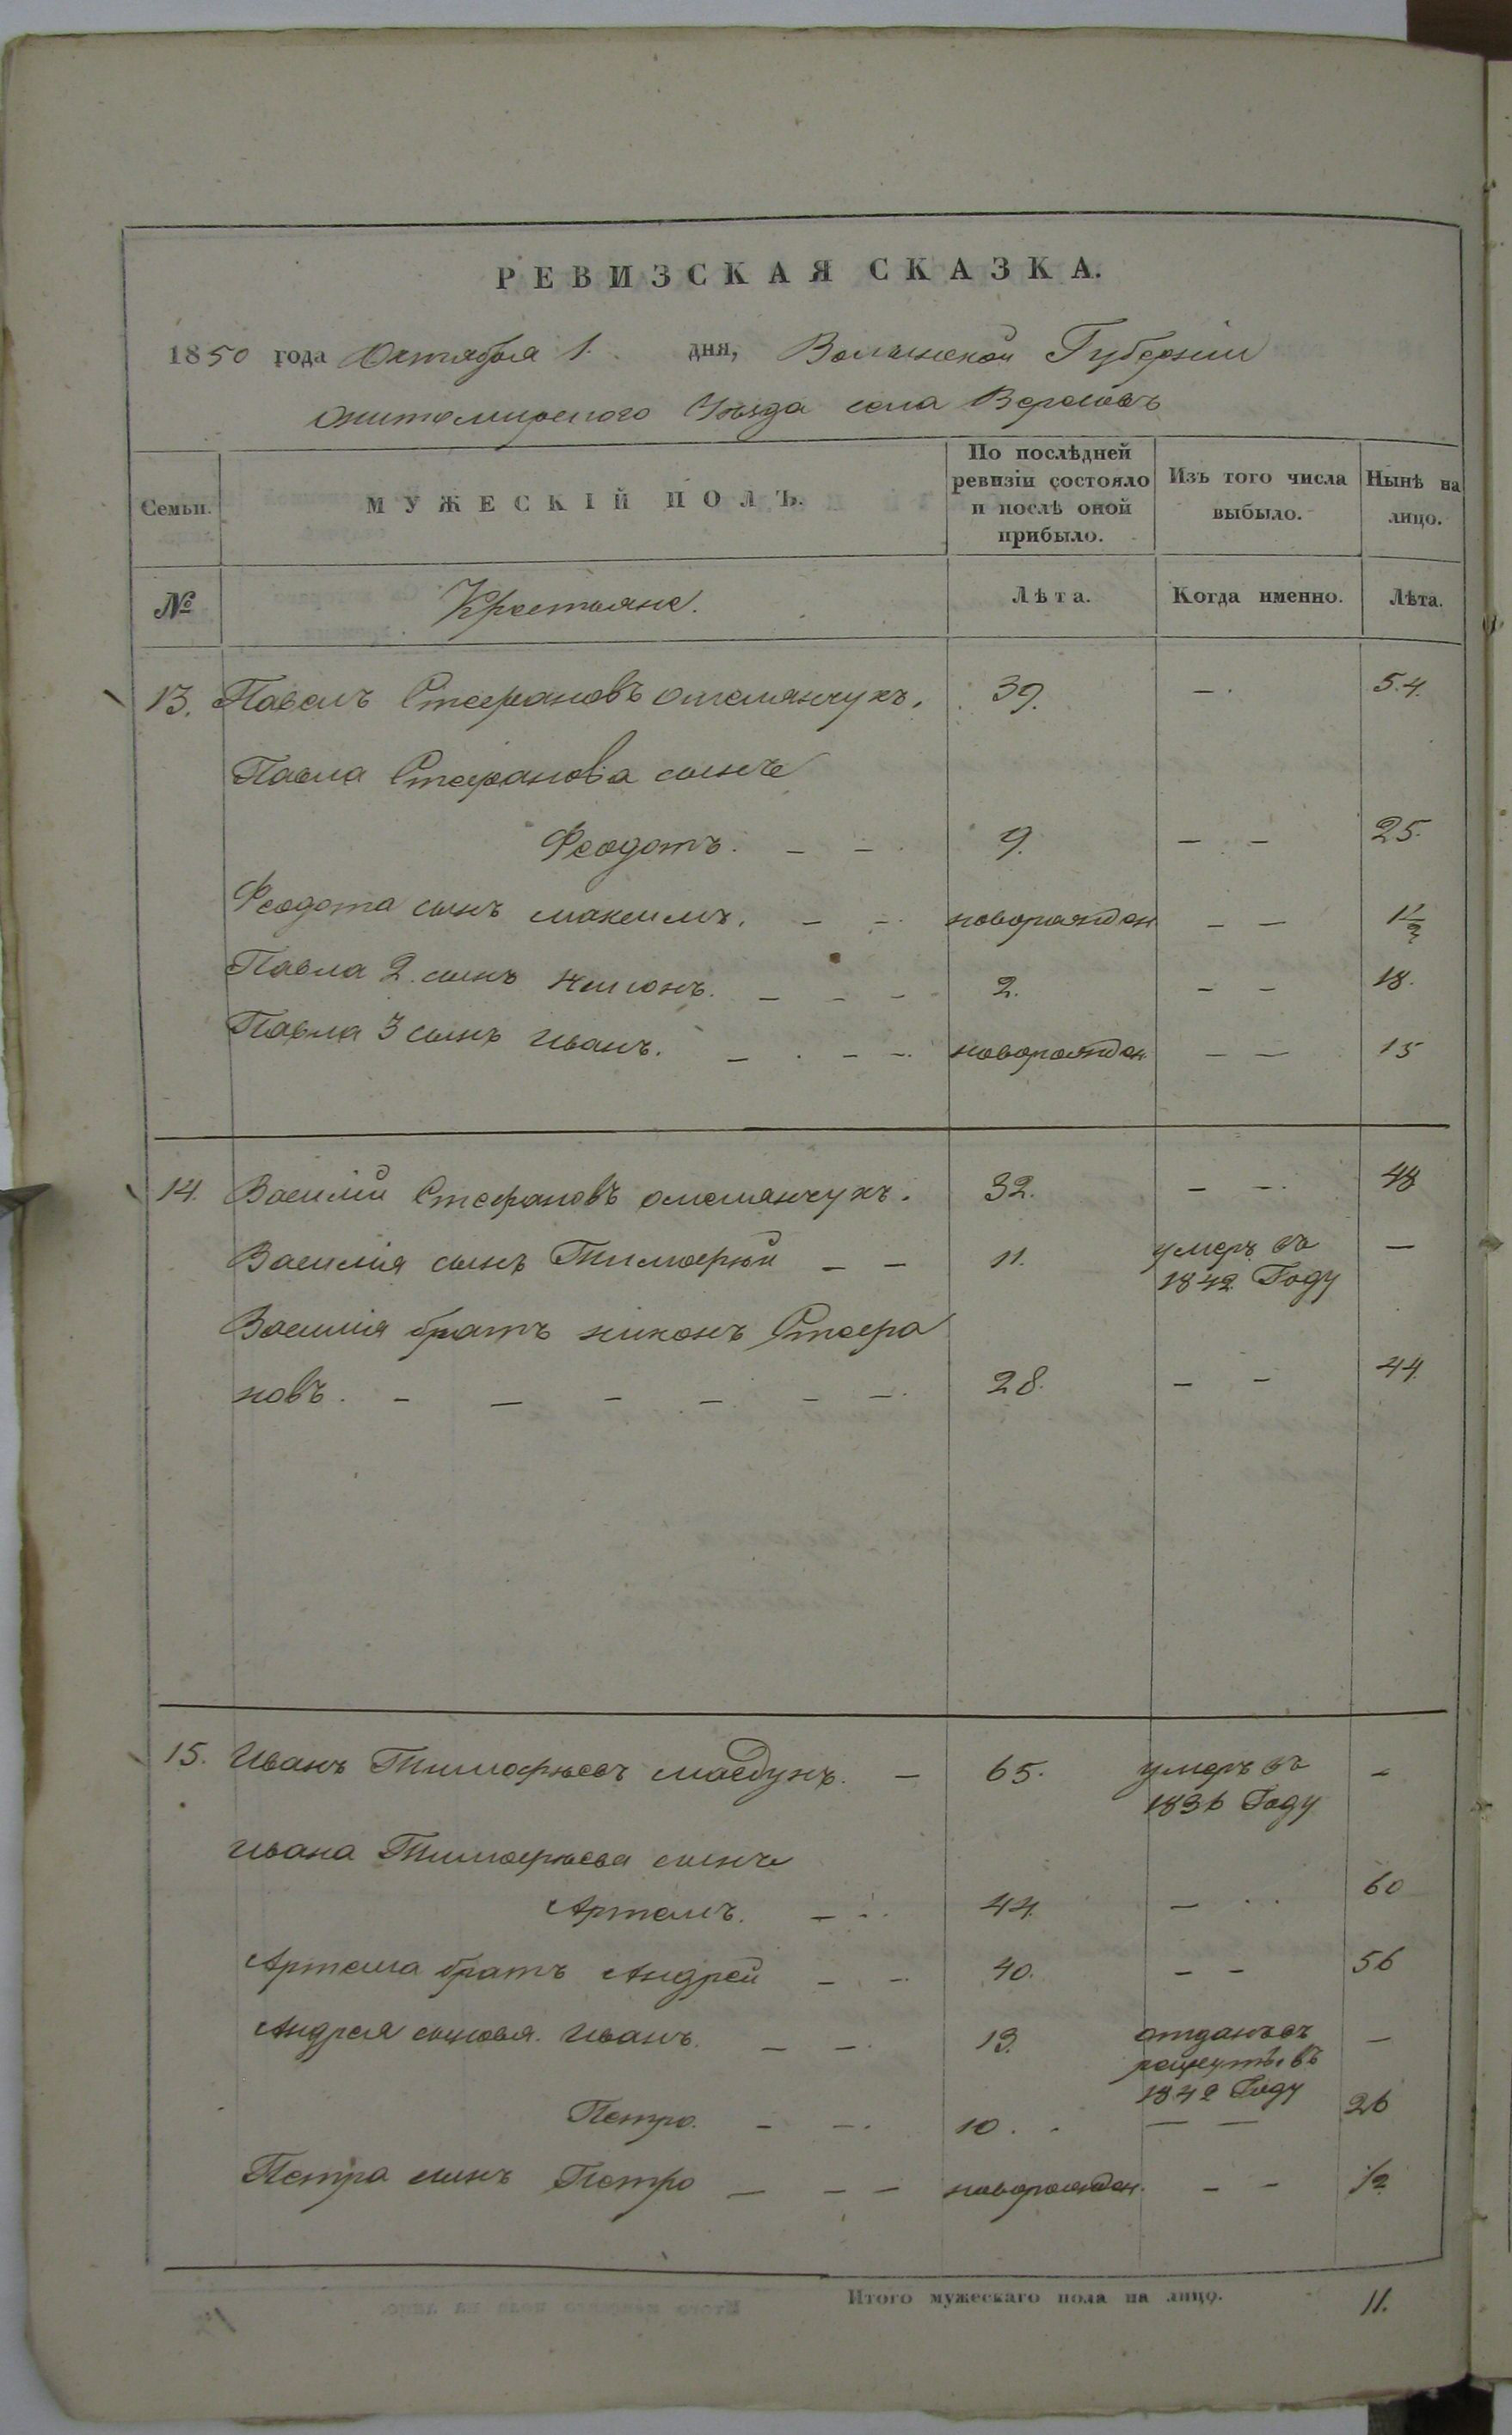 РЕВИЗСКАЯ СКАЗКА.
1850 года Октября 1. дня, Волынской Губерніи
Житомирского Уѣзда села
Семьи.
МУЖЕСКІЙ ПОЛЪ.
По послѣдней ревизіи состояло и послѣ оной прибыло.
Изъ того числа выбыло.
Нынѣ на лицо.
№
Крестьяне.
Лѣта.
Когда именно.
Лѣта.
13. Павелъ Стефановъ Омелянчукъ. 39. — 54.
Павла Стефанова сынъ
Феодотъ. — — 9. — — 25.
Феодота сынъ Максимъ. — — новорожден — — 1½
Павла 2. сынъ — — — 2. — — 18.
Павла 3 сынъ Иванъ. — — — новорожден. — — 15
14. Василій Стефановъ Омелянчукъ. 32. — — 48
Василія сынъ Тимофей — — 11. умеръ въ —
1842 Году
Василія братъ Никонъ Стефа
новъ. — — — — — — 28. — — 44.
15. Иванъ Тимофѣевъ — 65. умеръ въ —
1836 Году
Ивана Тимофѣева сынъ
Артемъ. — — 44. — 60
Артема братъ Андрей — — 40. — — 56
Андрея сыновья. Иванъ. — — 13. отданъ въ —
рекруты въ
1842 Году
Петро. — — 10. — — 26
Петра сынъ Петро — — — новорожден. — — ½
Итого мужескаго пола на лицо. 11.